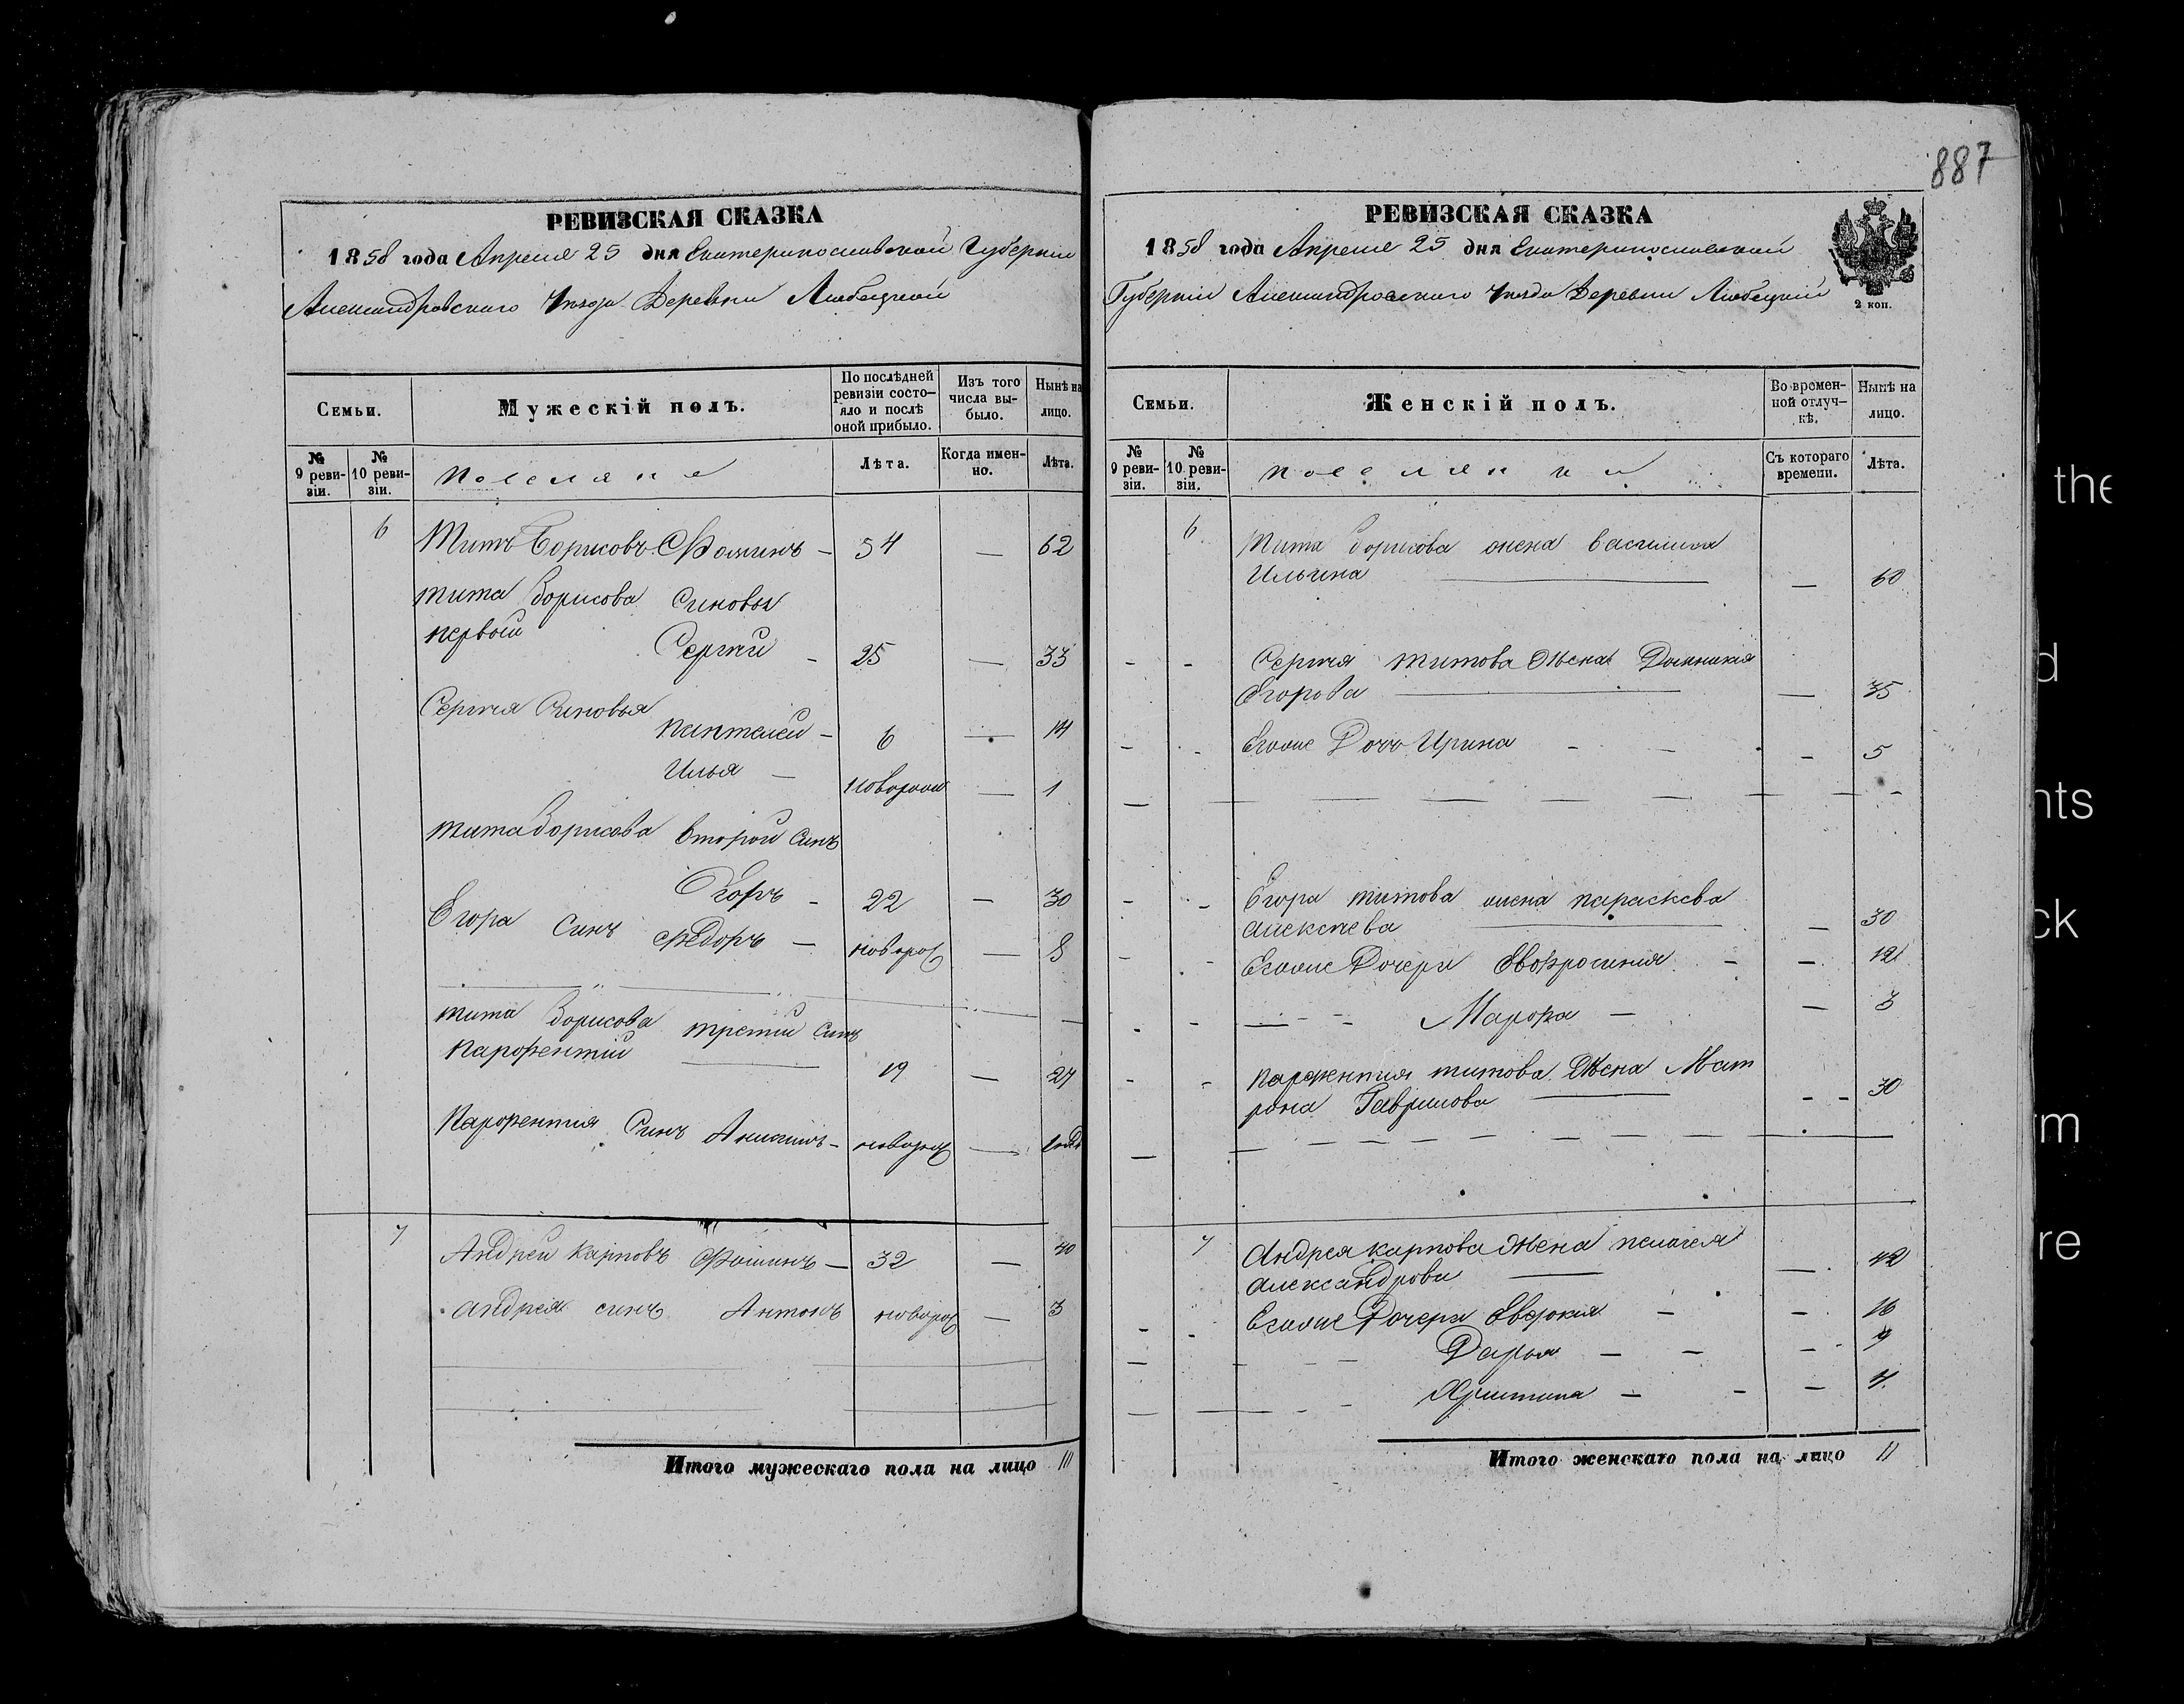 887
РЕВИЗСКАЯ СКАЗКА
1858 года Апреля 25 дня Екатеринославской Губернии
Александровского Уезда Деревни Любецкой
Семьи.
Мужескій полъ.
По послѣдней ревизіи состо-
яло и послѣ
оной прибыло.
Изъ того
числа вы-
было.
Нынѣ на
лицо.
№
9 реви-
зіи.
№
10 реви-
зіи.
поселяне
Лѣта.
Когда имен-
но.
Лѣта.
6 Титъ Борисовъ Фоминъ — 54 — 62
тита Борисова Синовья
первой Сергий — 25 — 33
Сергия Синовья
пантелей — 6 — 14
Илья — новорож — 1
тита Борисова второй синъ
Егоръ — 22 — 30
Егора Синъ Федоръ — новорож — 8
тита Борисова третий Синъ
парфентий 19 — 27
Парфентия Синъ — новорож —
7 Андрей Карповъ Фоминъ — 32 — 40
андрея синъ Антонъ новорож — 3
Итого мужескаго пола на лицо
РЕВИЗСКАЯ СКАЗКА
1858 года Апреля 25 дня Екатеринославской
Губернии Александровского Уезда Деревни Любецкой
2 коп.
Семьи.
Женскій полъ.
Во времен-
ной отлуч-
кѣ.
Нынѣ на
лицо.
№
9 реви-
зіи.
№
10 реви-
зіи.
поселянки
Съ котораго
времени.
Лѣта.
6 Тита Борисова жена василиса
Ильина — 60
Сергия титова Жена Домникия
Егорова — 35
Егоже Дочь Ирина — 5
Егора титова жена параскева
алексеева — 30
Егоже Дочери Евфросиния — 12
Марфа — 3
парфентия титова Жена Мат
рона Гаврилова — 30
7 Андрея карпова Жена пелагея
александрова — 42
Егоже Дочери Евдокия — 16
Дарья — 9
Христина — 4
Итого женскаго пола на лицо 11
the
d
nts
ck
rm
re